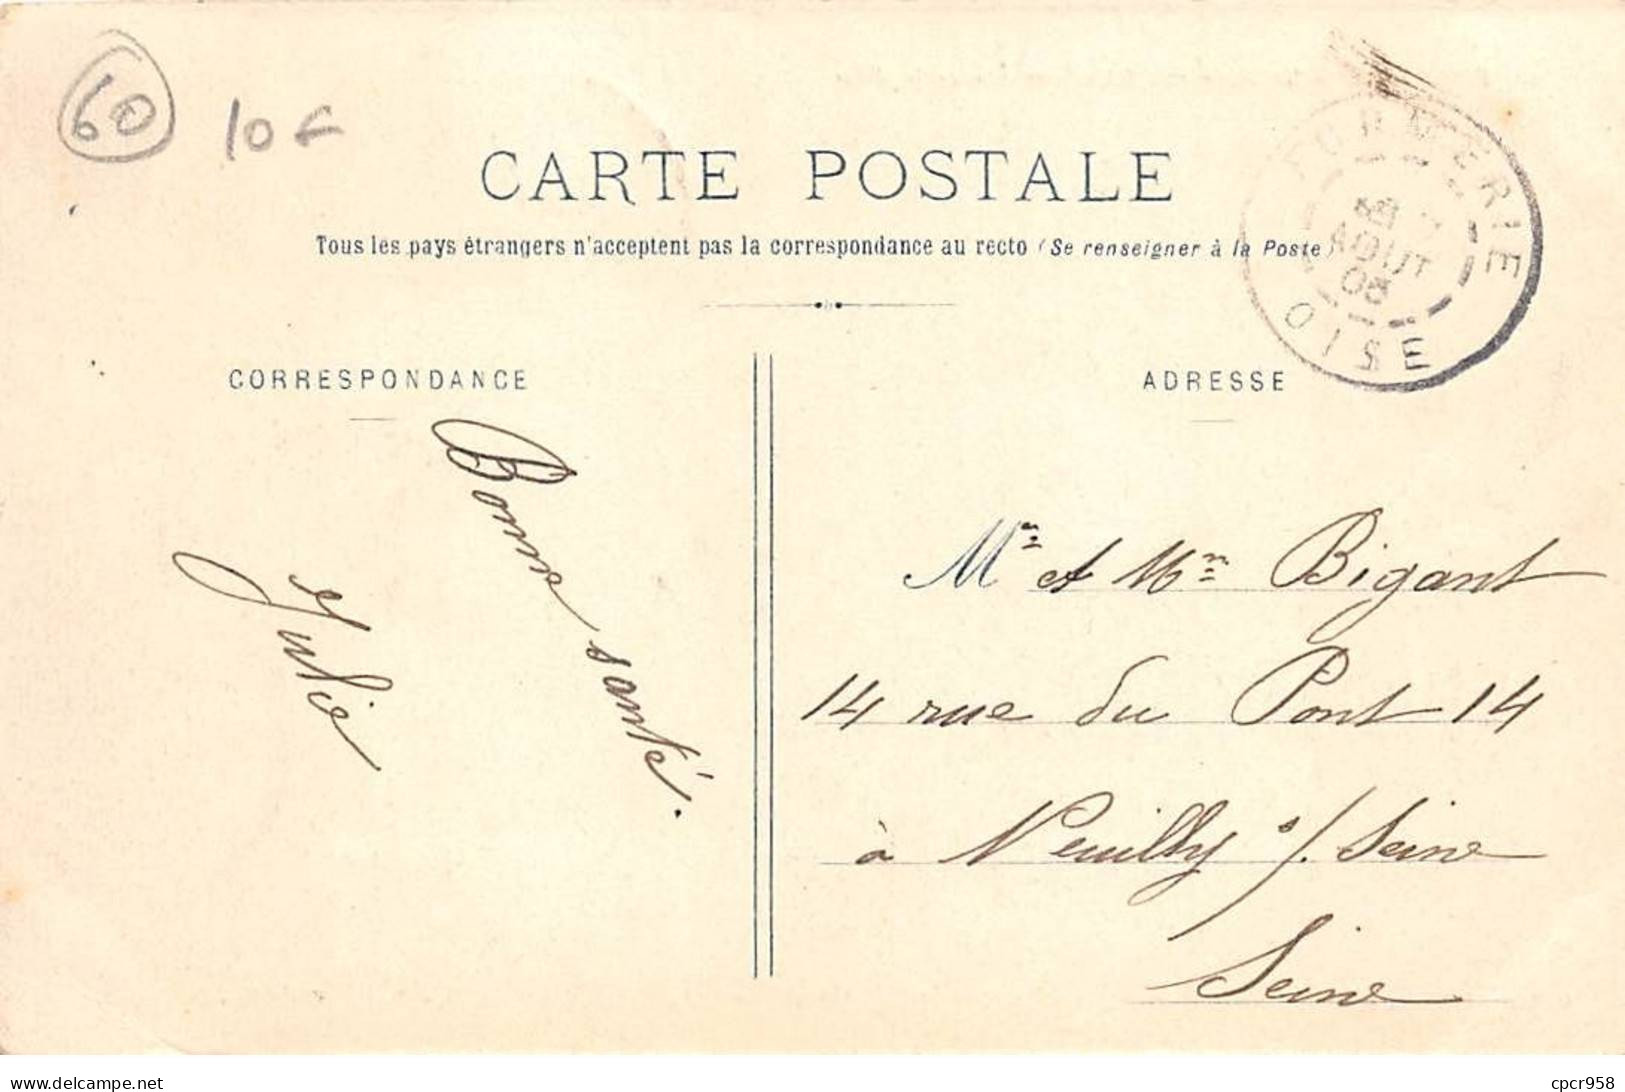 60
10 F
CARTE POSTALE
Tous les pays étrangers n'acceptent pas la correspondance au recto (Se renseigner à la Poste)
FORMERIE
AOUT
OISE
CORRESPONDANCE
ADRESSE
Bonne santé.
Julie
Mr et Mme Bigant
14 rue du Pont 14
à Neuilly s/. Seine
Seine
www.delcampe.net
cpcr958